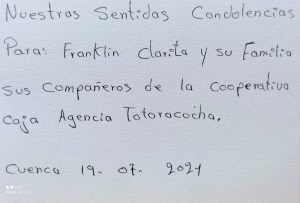 Nuestras Sentidas Condolencias
Para: Franklin Clarita y su Familia
sus Compañeros de la Cooperativa
Coja Agencia Totoracocha.
Cuenca 19- 07- 2021